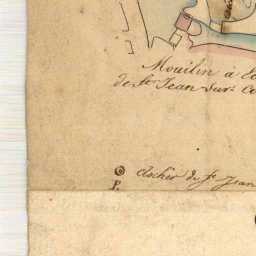 Moulin à
de St Jean Sur
clocher de St Jean
P.